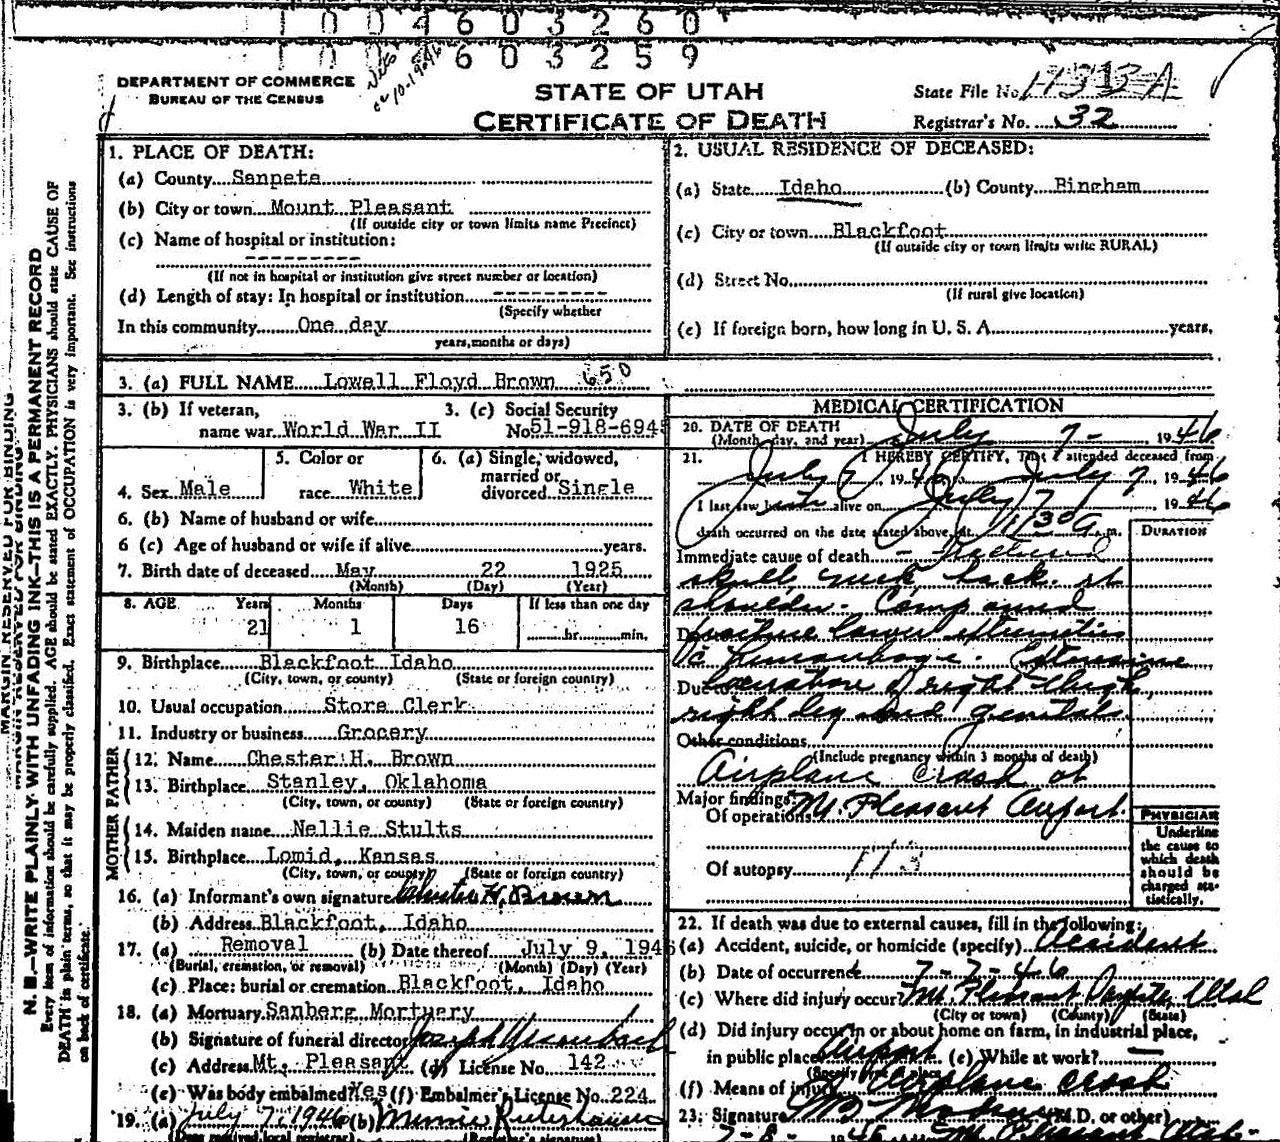 1 0 0 4 6 0 3 2 6 0
6 0 3 2 5 9
DEPARTMENT OF COMMERCE
BUREAU OF THE CENSUS
STATE OF UTAH
CERTIFICATE OF DEATH
State File No.
Registrar's No. 32
MARGIN RESERVED FOR BINDING
N. B.—WRITE PLAINLY WITH UNFADING INK—THIS IS A PERMANENT RECORD
Every item of information should be carefully supplied. AGE should be stated EXACTLY. PHYSICIANS should state CAUSE OF
DEATH in plain terms, so that it may be properly classified. Exact statement of OCCUPATION is very important. See instructions
on back of certificate.
1. PLACE OF DEATH:
(a) County Sanpete
(b) City or town Mount Pleasant
(If outside city or town limits name Precinct)
(c) Name of hospital or institution:
---------
(If not in hospital or institution give street number or location)
(d) Length of stay: In hospital or institution ---------
(Specify whether
In this community One day
years, months or days)
2. USUAL RESIDENCE OF DECEASED:
(a) State Idaho (b) County Bingham
(c) City or town Blackfoot
(If outside city or town limits write RURAL)
(d) Street No.
(If rural give location)
(e) If foreign born, how long in U. S. A. years.
3. (a) FULL NAME Lowell Floyd Brown 650
3. (b) If veteran, name war World War II
3. (c) Social Security No. 51-918-6945
4. Sex Male
5. Color or race White
6. (a) Single, widowed, married or divorced Single
6. (b) Name of husband or wife
6 (c) Age of husband or wife if alive years.
7. Birth date of deceased May 22 1925
(Month) (Day) (Year)
8. AGE Years Months Days If less than one day
21 1 16 hr. min.
9. Birthplace Blackfoot Idaho
(City, town, or county) (State or foreign country)
10. Usual occupation Store Clerk
11. Industry or business Grocery
FATHER
12. Name Chester H. Brown
13. Birthplace Stanley, Oklahoma
(City, town, or county) (State or foreign country)
MOTHER
14. Maiden name Nellie Stults
15. Birthplace Lomid, Kansas
(City, town, or county) (State or foreign country)
16. (a) Informant's own signature Chester H. Brown
(b) Address Blackfoot, Idaho
17. (a) Removal (b) Date thereof July 9, 1946
(Burial, cremation, or removal) (Month) (Day) (Year)
(c) Place: burial or cremation Blackfoot, Idaho
18. (a) Mortuary Sanberg Mortuary
(b) Signature of funeral director Joseph
(c) Address Mt. Pleasant (d) License No. 142
(e) Was body embalmed Yes (f) Embalmer's License No. 224
19. (a) July 7, 1946 (b) Minnie
(Date received local registrar) (Registrar's signature)
MEDICAL CERTIFICATION
20. DATE OF DEATH
(Month, day, and year) July 7- , 19 46
21. I HEREBY CERTIFY, That I attended deceased from
July 7, 19 46 July 7, 19 46
I last saw him alive on July 7, 19 46
death occurred on the date stated above, at 11:30 A. m.
DURATION
Immediate cause of death - Fractured
skull, neck, back, rt
shoulder. Compound
Due to fracture lower extremities
Hemorrhage. Extensive
Due to laceration of right thigh,
right leg and genitals.
Other conditions
(Include pregnancy within 3 months of death)
Airplane crash at
Major findings: Mt. Pleasant Airport.
Of operations
Of autopsy
PHYSICIAN
Underline
the cause to
which death
should be
charged sta-
tistically.
22. If death was due to external causes, fill in the following:
(a) Accident, suicide, or homicide (specify) Accident
(b) Date of occurrence 7-7-46
(c) Where did injury occur? Mt. Pleasant Utah
(City or town) (County) (State)
(d) Did injury occur in or about home on farm, in industrial place,
in public place Airport (e) While at work? —
(Specify type of place)
(f) Means of injury Airplane crash
23. Signature (M.D. or other)
7-8- 1946 Mt. Pleasant Utah